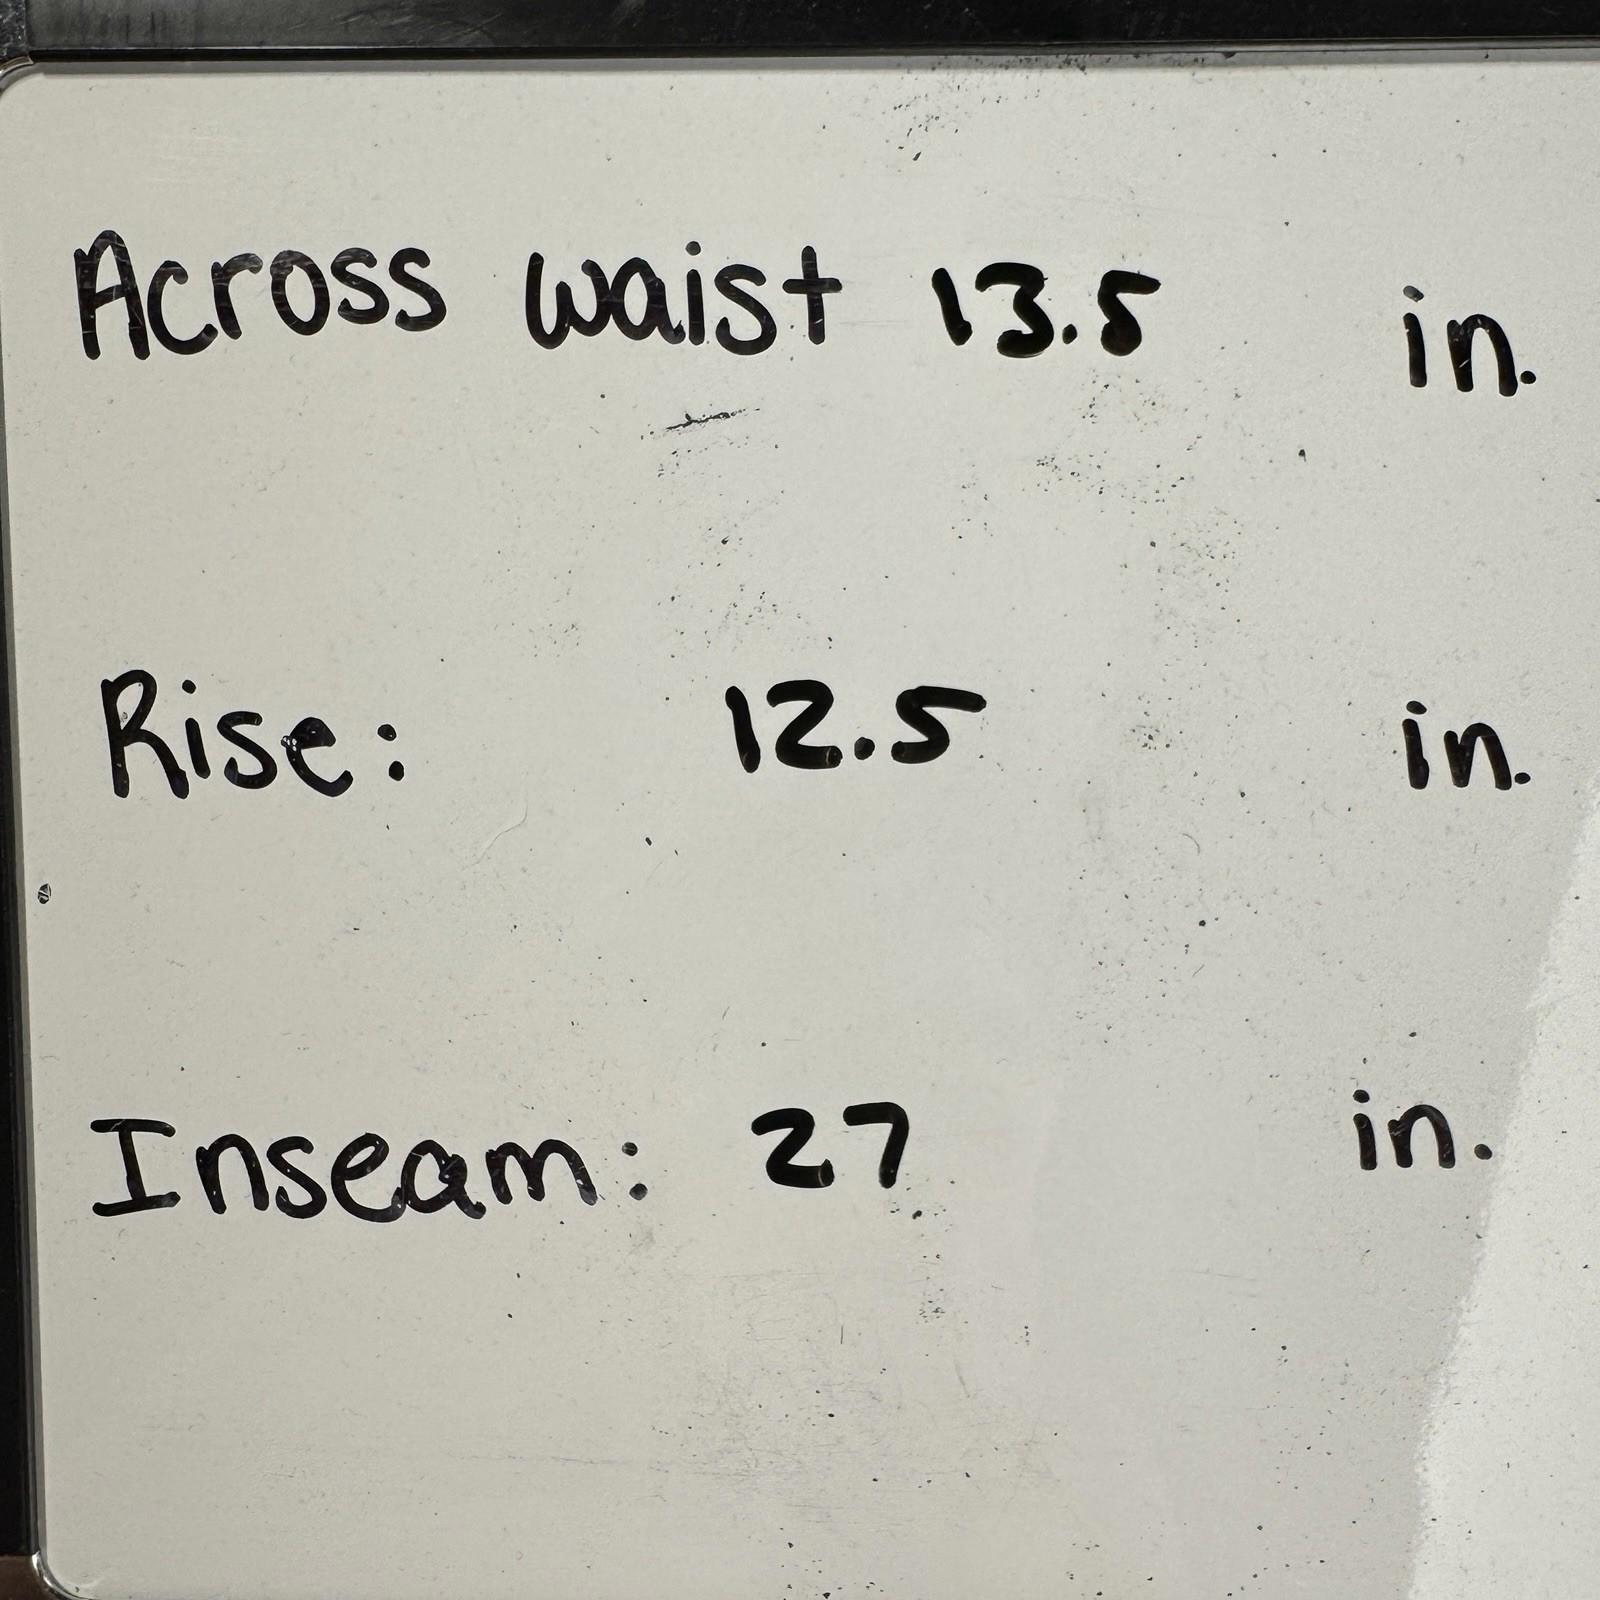 Across waist 13.5 in.
Rise: 12.5 in.
Inseam: 27 in.